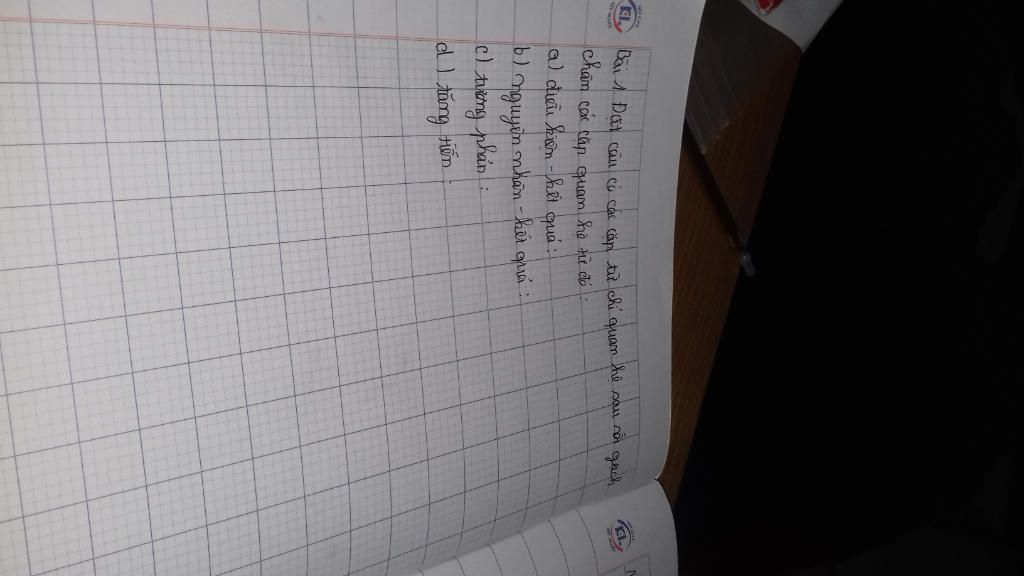 Bài 1. Đặt câu có các cặp từ chỉ quan hệ sau rồi gạch
chân các cặp quan hệ từ đó :
a) điều kiện - kết quả :
b) nguyên nhân - kết quả :
c) tương phản :
d) tăng tiến :